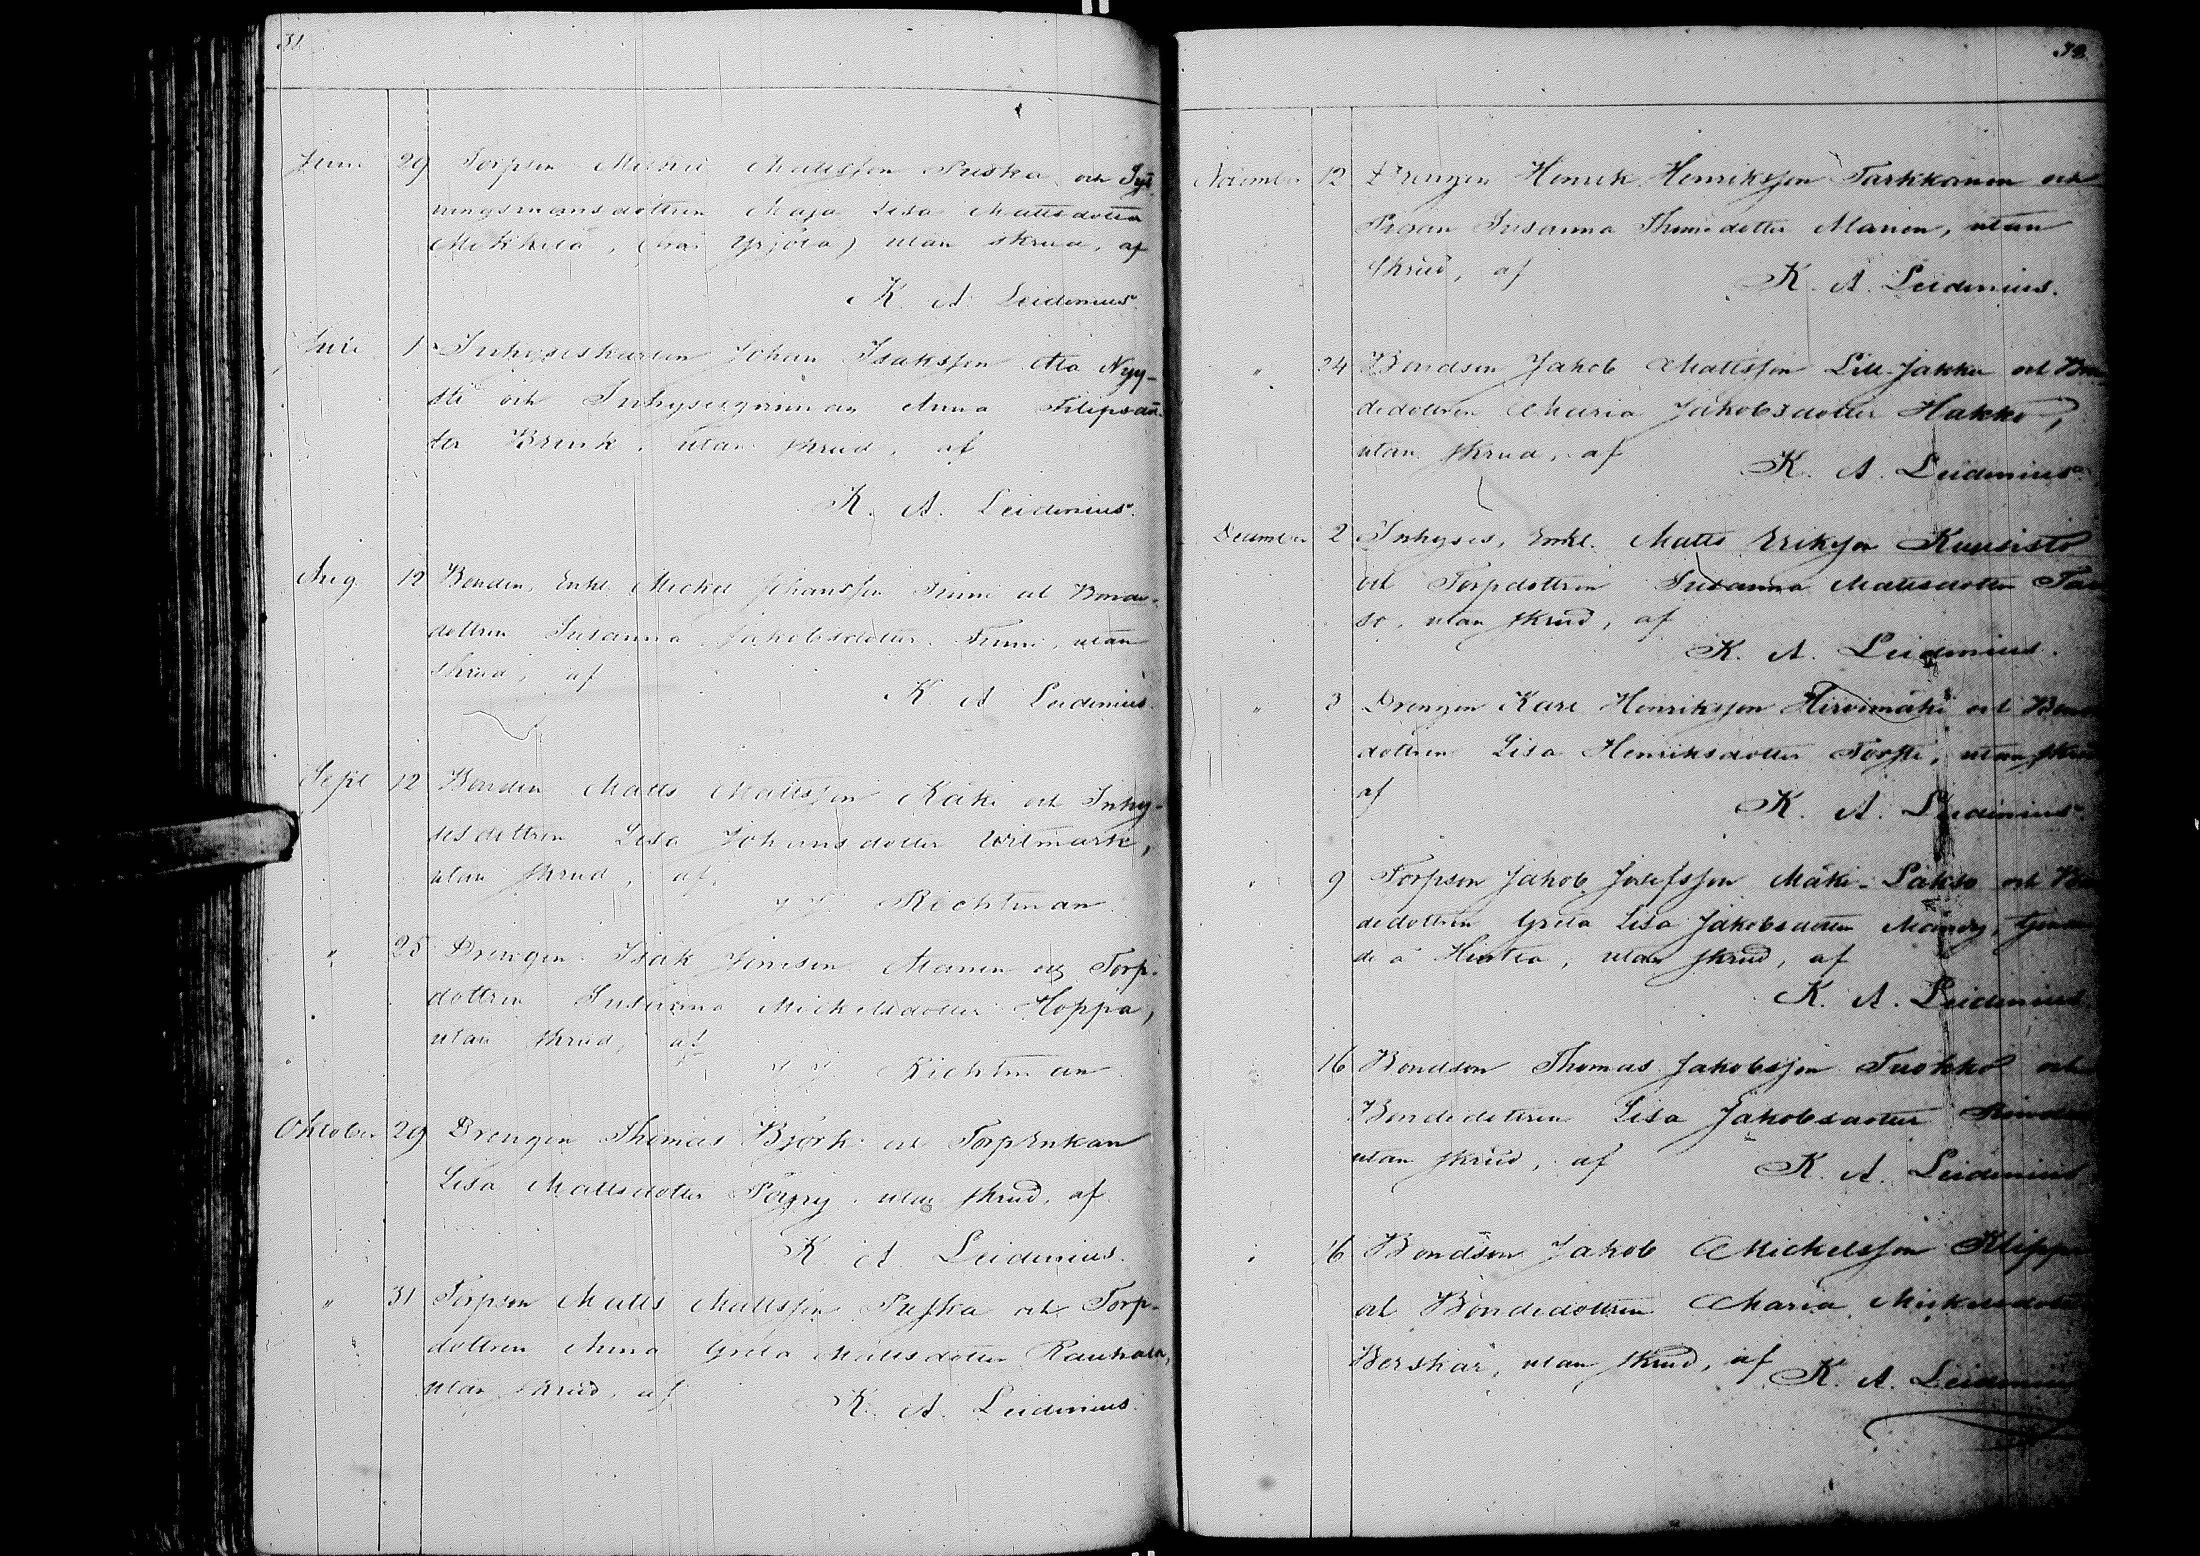 31
Juni 29 Torpson Michel Mattsson Puska och Syt-
ningsmansdottren Maja Lisa Mattsdotter
Mikkilä, (från Yrjölä) utan skrud, af
K. A. Leidenius.
Juli 1 Inhyseskarlen Johan Isaksson Ala Nyy-
sti och Inhysesqvinnan Anna Filipsdot-
ter Brink, utan skrud, af
K. A. Leidenius.
Aug. 12 Bonden, Enkl. Mickel Johansson Finni och Bonde-
dottren Susanna Jakobsdotter Finni, utan
skrud, af
K. A. Leidenius.
Sept 12 Bonden Matts Mattsson Käki och Inhy-
sesdottren Lisa Johansdotter Witmark,
utan skrud, af
Richtman
" 25 Drengen Isak Manen och Torp-
dottren Susanna Mickelsdotter Hoppa,
utan skrud, af
Richtman
Oktober 29 Drengen Thomas Björk och TorpEnkan
Lisa Mattsdotter Pöyry, utan skrud, af
K. A. Leidenius.
" 31 Torpson Matts Mattsson Puska och Torp-
dottren Anna Greta Mattsdotter Rauhala,
utan skrud, af
K. A. Leidenius.
32
November 12 Drengen Henrik Henriksson Tarkkanen och
Pigan Susanna Thomédotter Manen, utan
skrud, af
K. A. Leidenius.
" 24 Bondson Jakob Mattsson Lill-Jakka och Bon-
dedottren Maria Jakobsdotter Hakko,
utan skrud, af
K. A. Leidenius.
December 2 Inhyses, Enkl. Matts Eriksson Kuusisto
och Torpdottren Susanna Mattsdotter
so, utan skrud, af
K. A. Leidenius.
" 3 Drengen Karl Henriksson Hirvimäki och
dottren Lisa Henriksdotter utan skrud
af
K. A. Leidenius.
" 9 Torpson Jakob Josefsson Mäki-Lakso och Bon-
dedottren Greta Lisa Jakobsdotter
de å utan skrud, af
K. A. Leidenius.
16 Bondson Thomas Jakobsson Tuokko och
Bondedottren Lisa Jakobsdotter
utan skrud, af
K. A. Leidenius
" 16 Bondson Jakob Mickelsson Klippo
och Bondedottren Maria Mickelsdotter
Berskär, utan skrud, af
K. A. Leidenius